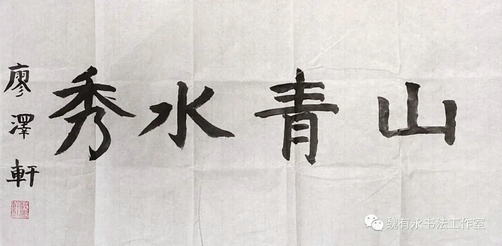 山青水秀
廖澤軒
魏有水书法工作室